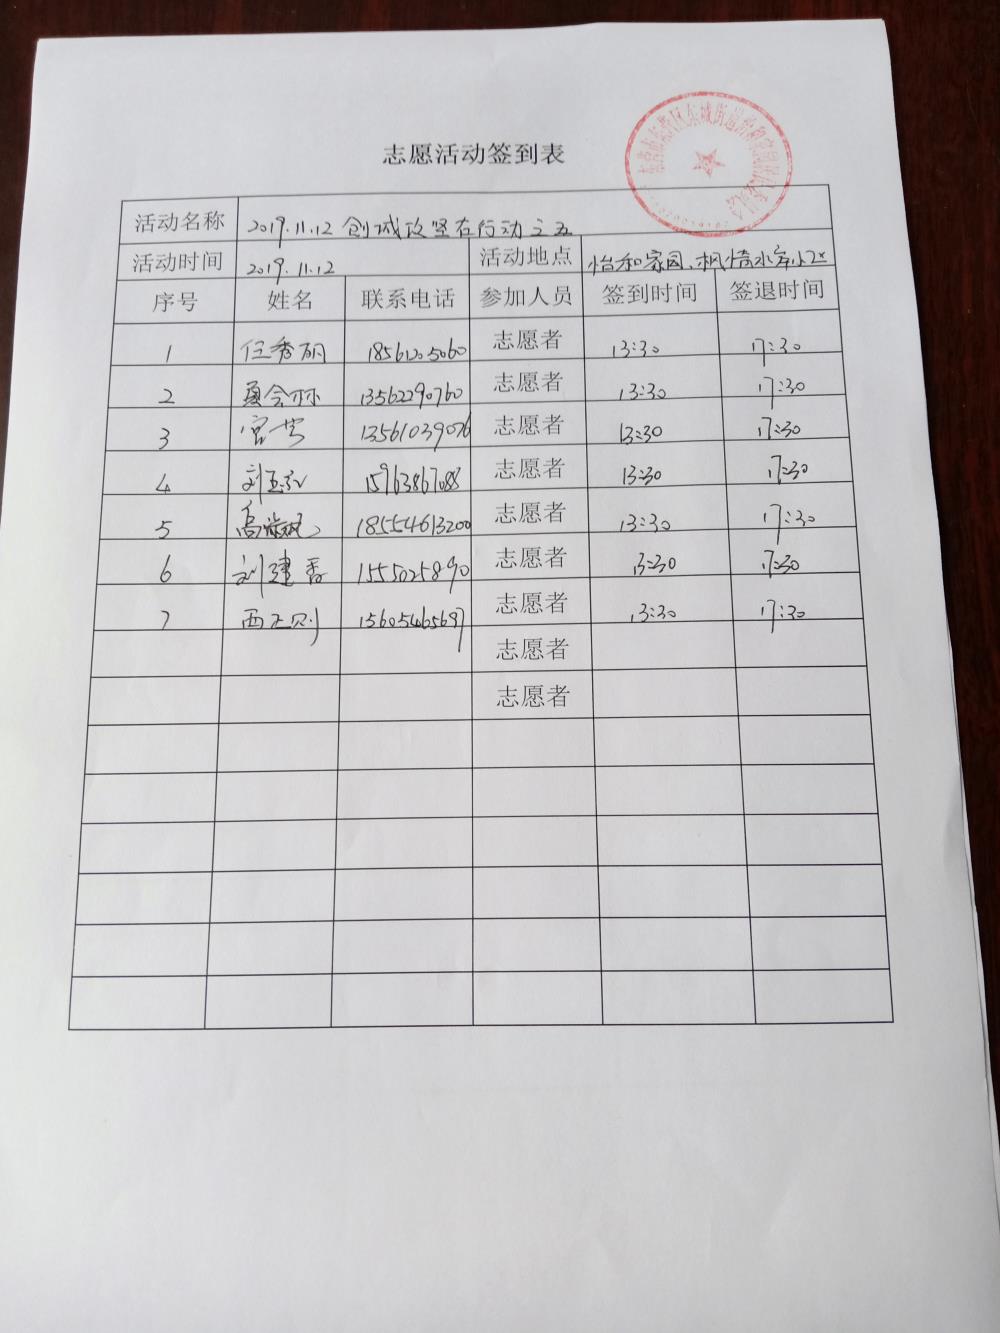 志愿活动签到表
活动名称 2019.11.12 创城攻坚在行动之五
活动时间 2019.11.12 活动地点 怡和家园、枫情水岸小区
序号 姓名 联系电话 参加人员 签到时间 签退时间
1 任秀丽 18561205060 志愿者 13:30 17:30
2 夏会林 13562290760 志愿者 13:30 17:30
3 宫芳 13561039076 志愿者 13:30 17:30
4 刘玉红 15963867088 志愿者 13:30 17:30
5 18554613200 志愿者 13:30 17:30
6 刘建香 1555025890 志愿者 13:30 17:30
7 西正则 15605465697 志愿者 13:30 17:30
志愿者
志愿者